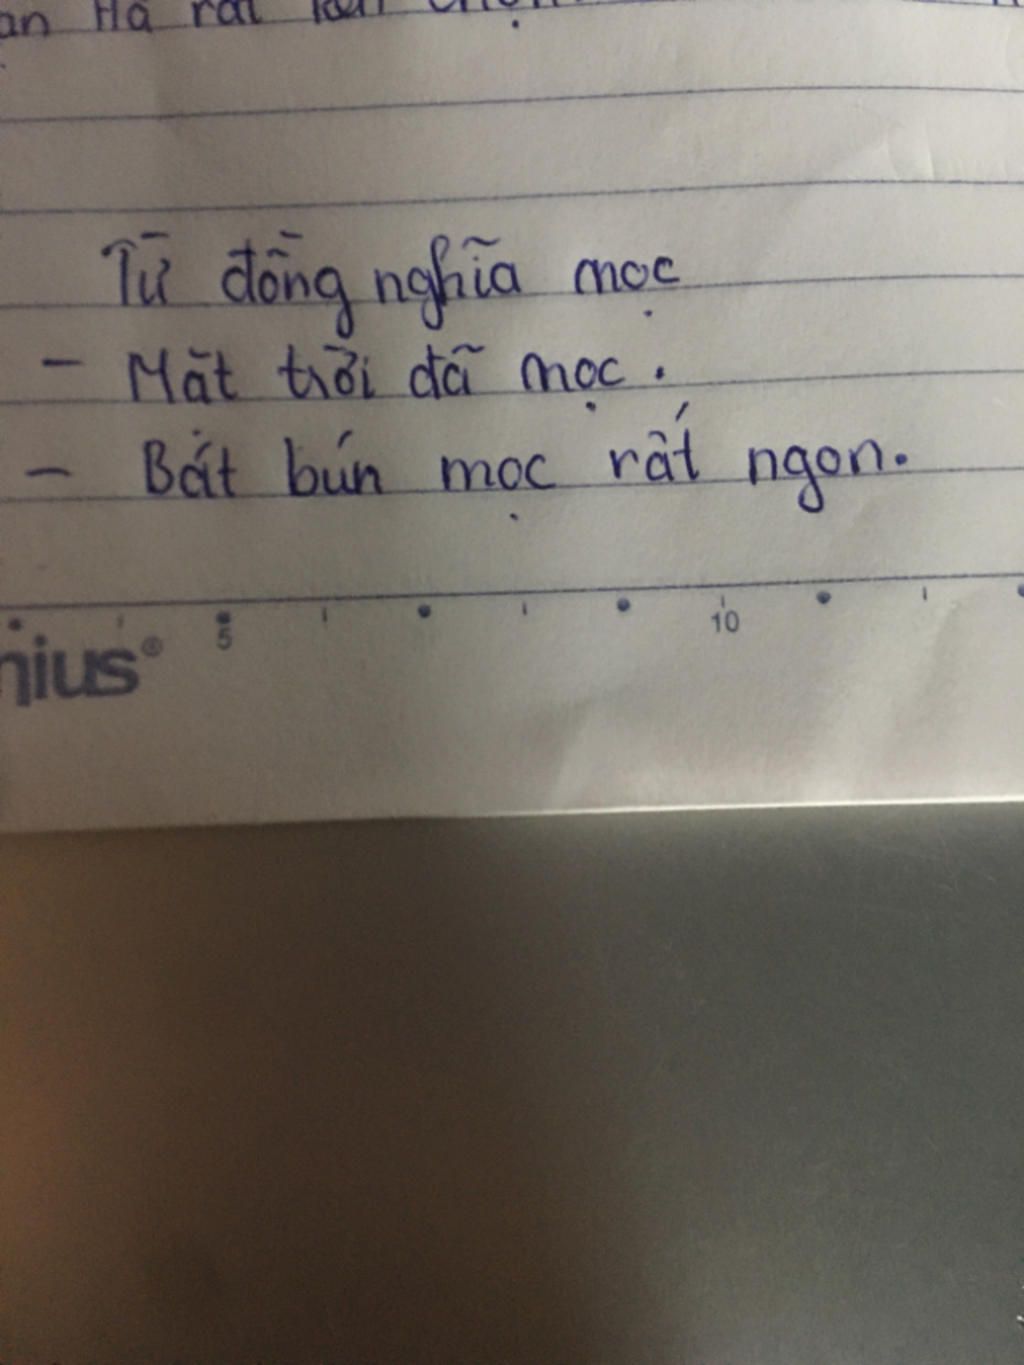 Hà rất
Từ đồng nghĩa mọc
- Mặt trời đã mọc.
- Bát bún mọc rất ngon.
5 10
nius®